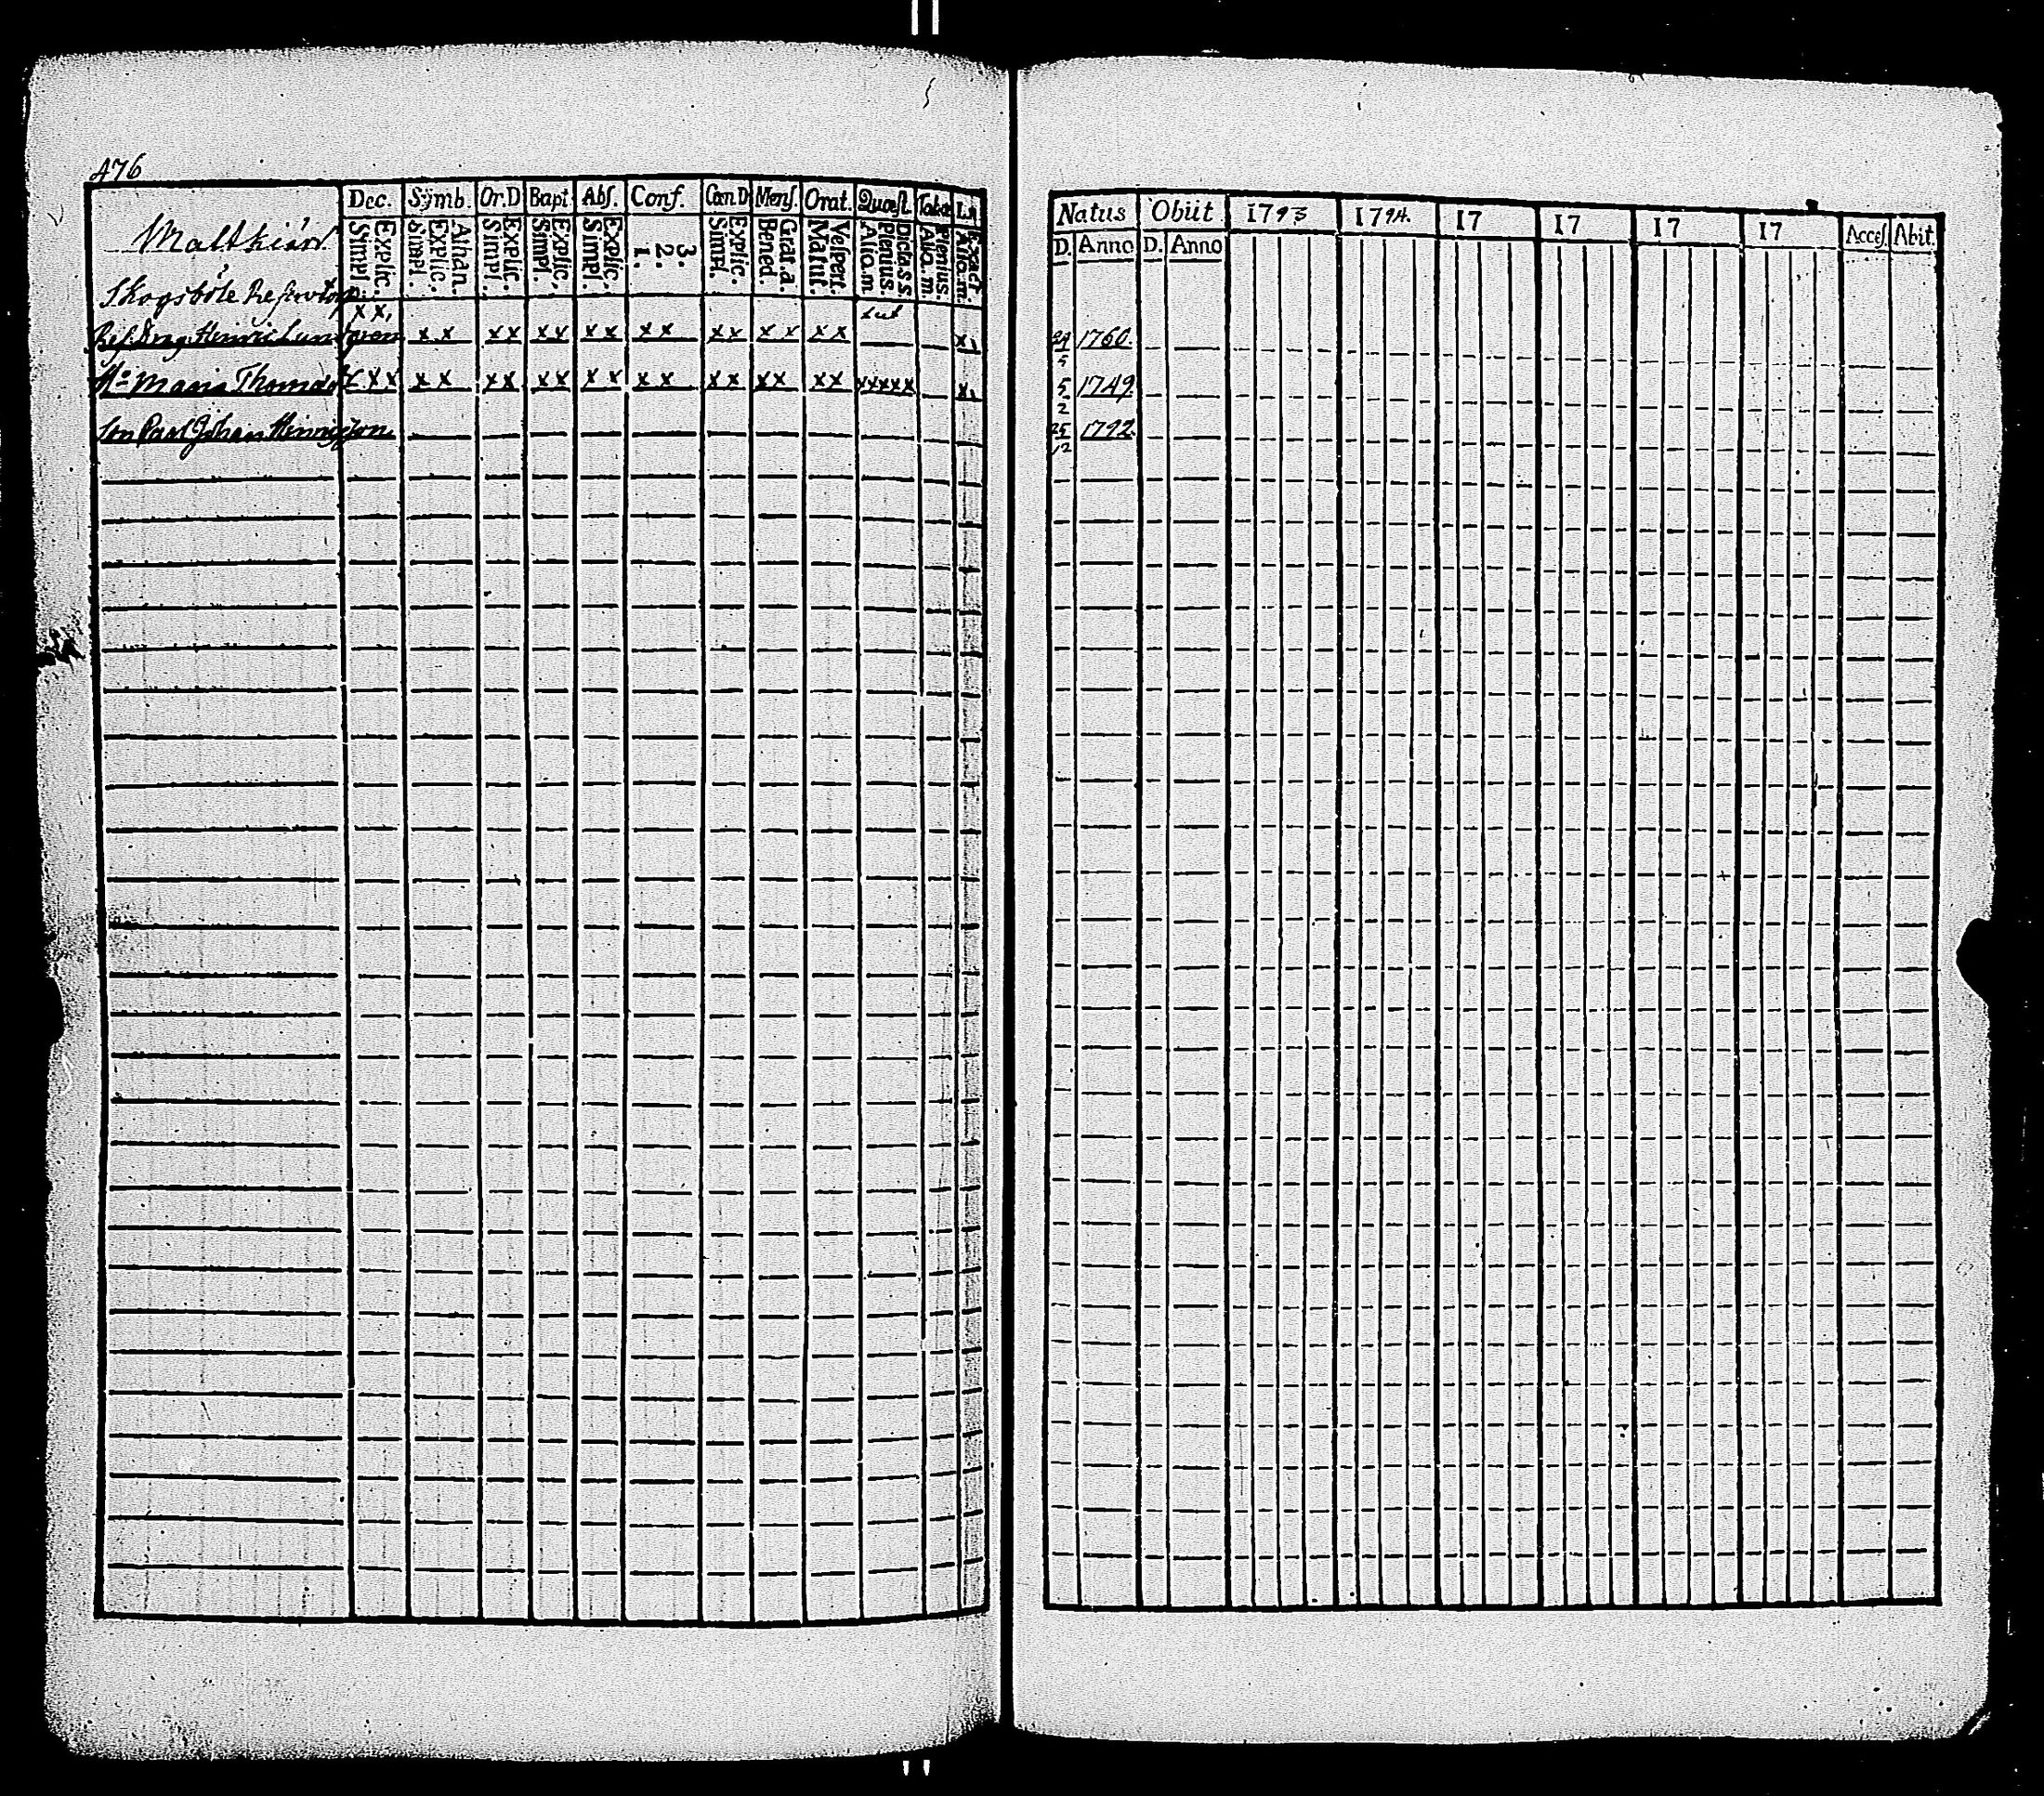 476
Dec. Symb. Or.D Bapt. Abſ. Conf. Cœn.D Menſ. Orat. Quæſt. Tabæ
Malthiän
Explic. Simpl. Athan. Explic. Simpl. Explic. Simpl. Explic. Simpl. Explic. Simpl. 3. 2. 1. Explic. Simpl. Grat. a. Bened. Veſpert. Matut. Dicta SS. Plenius. Aliq. m. Plenius. Aliq. m. Exact. Aliq. m.
Skogsböle
x x,
Henric Lundgren x x x x x x x x x x x x x x x x x,
Hu Maria Thomasd x x x x x x x x x x x x x x x x x x x x x x x x x,
Son Carl Johan Henricsson
Natus Obiit 1793 1794. 17 17 17 17 Acceſ. Abit.
D. Anno D. Anno
24/5 1760.
5/2 1749.
25/12 1792.